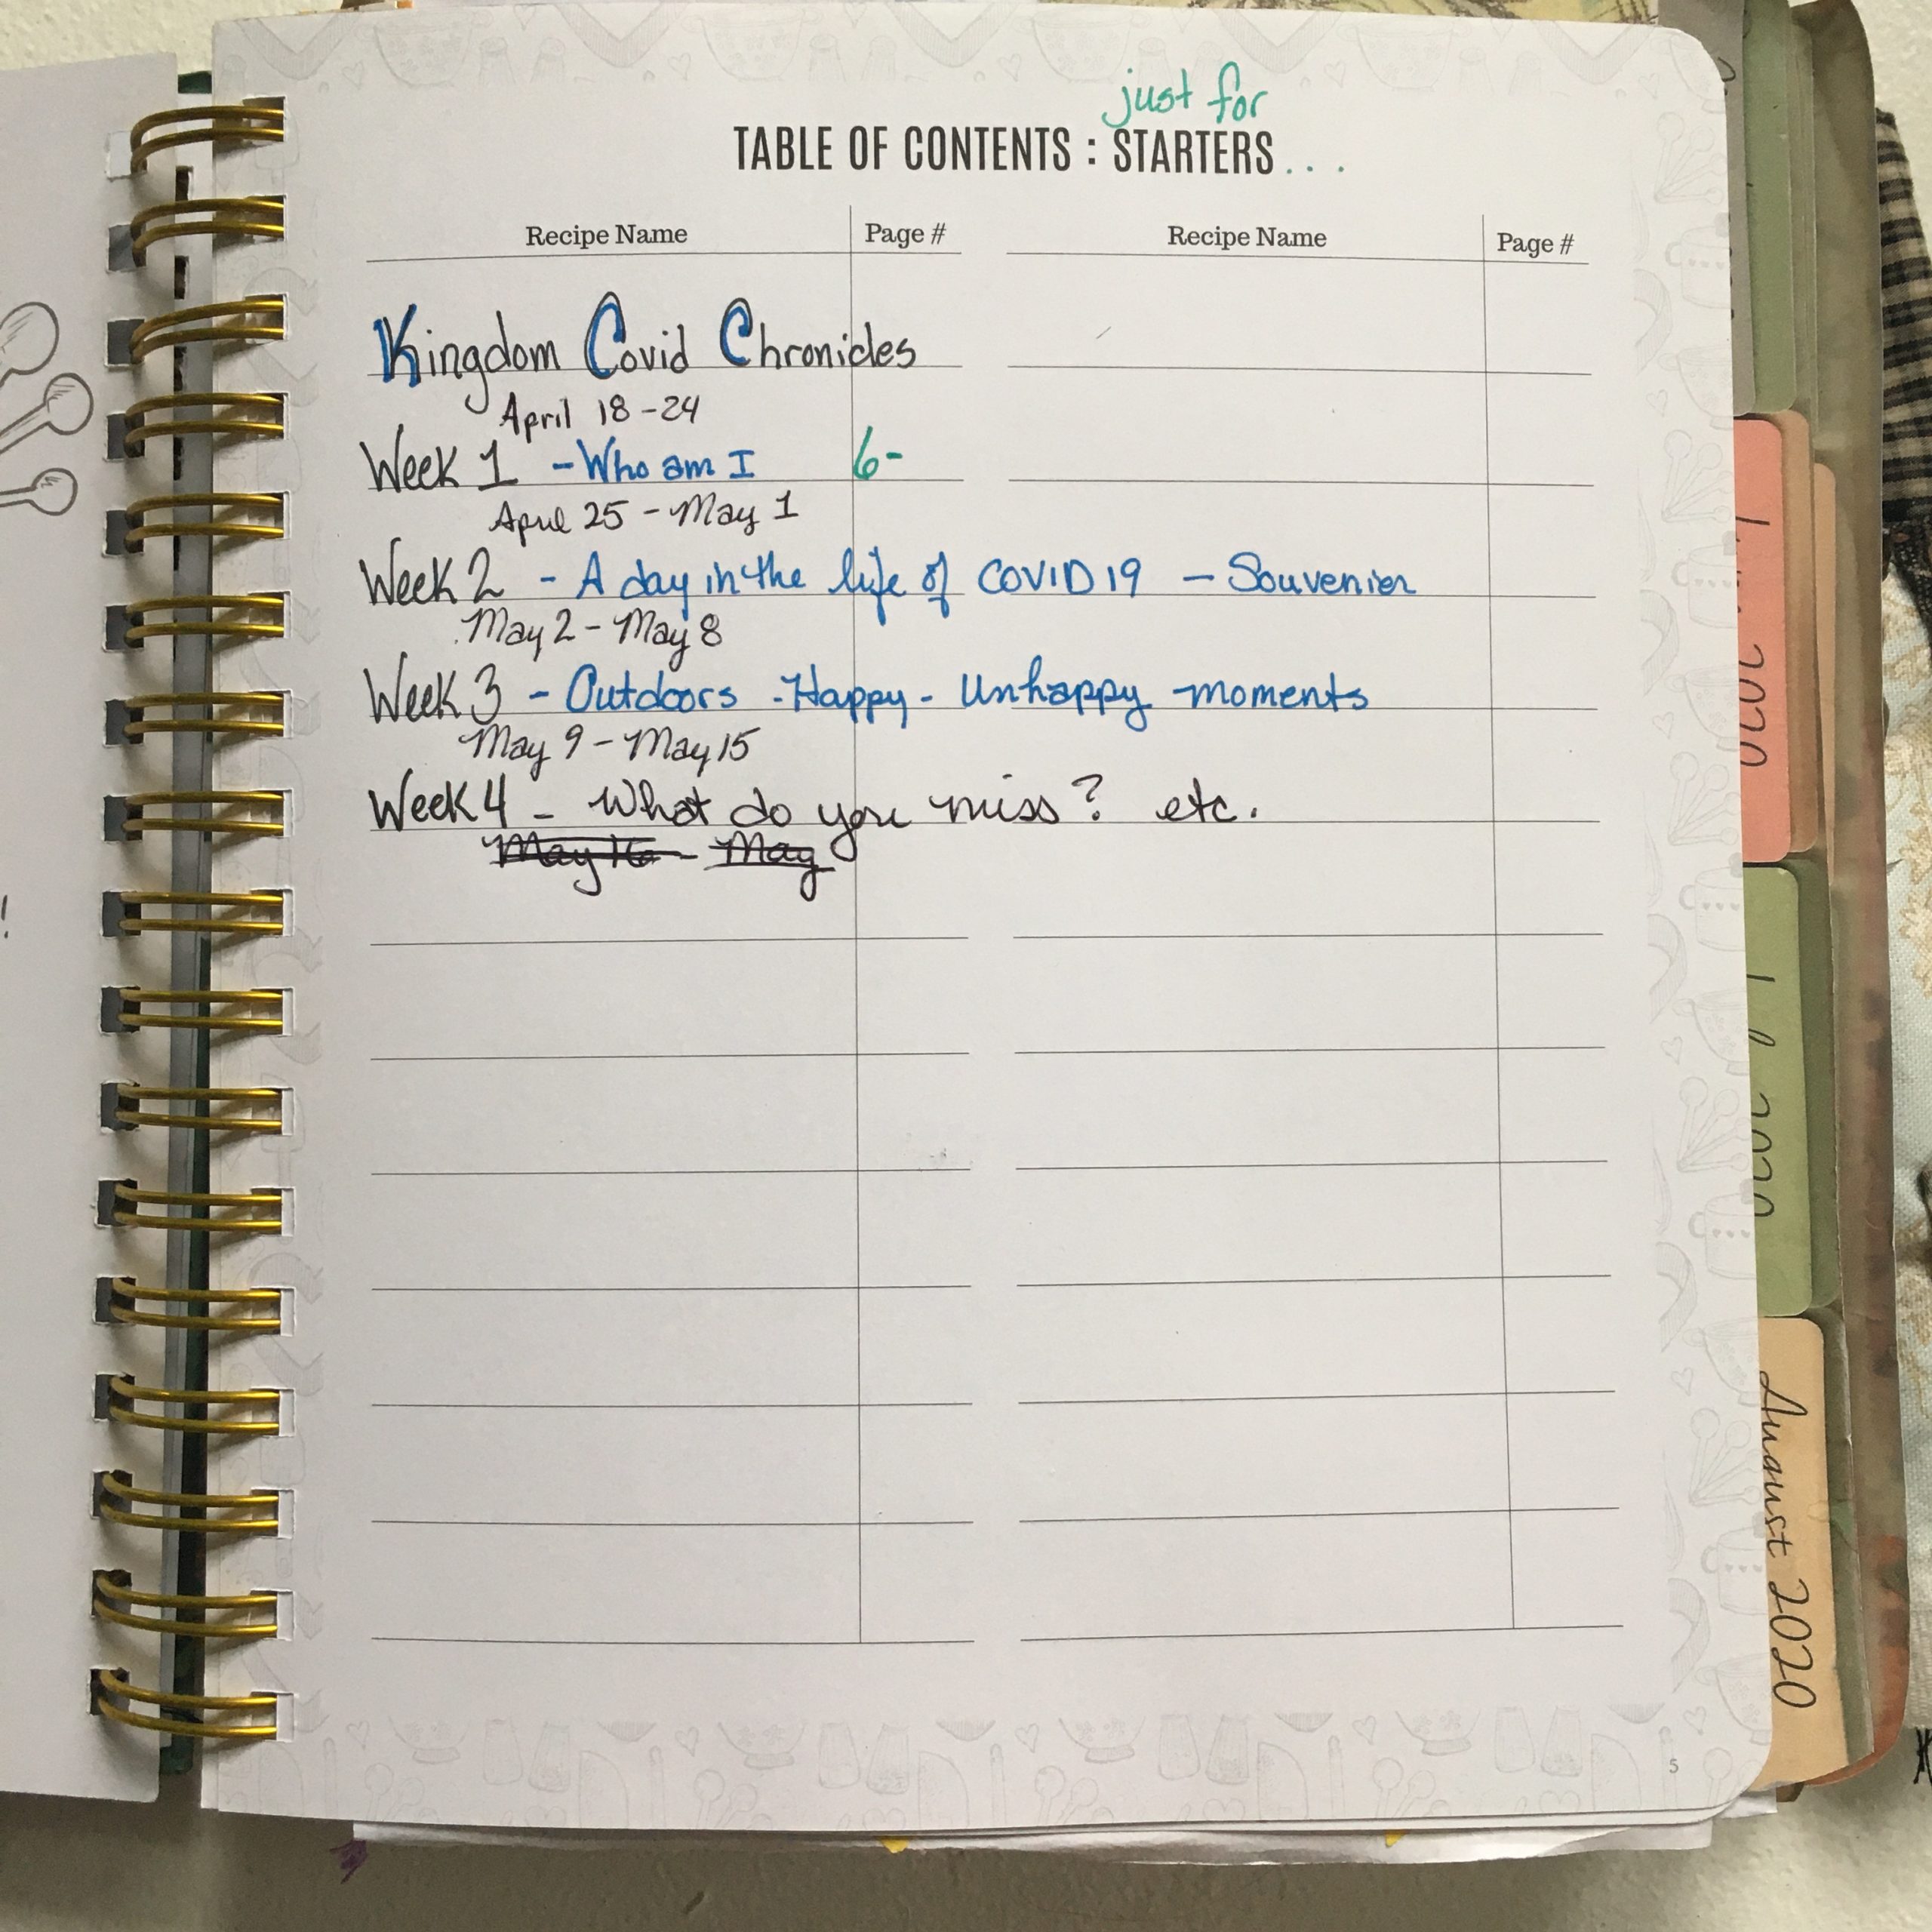 just for
TABLE OF CONTENTS : STARTERS...
Recipe Name Page # Recipe Name Page #
Kingdom Covid Chronicles
April 18-24
Week 1 - Who am I 6-
April 25 - May 1
Week 2 - A day in the life of COVID 19 - Souvenier
May 2 - May 8
Week 3 - Outdoors - Happy - Unhappy moments
May 9 - May 15
Week 4 - What do you miss? etc.
May 16 - May
5
2020
2020
August 2020
!